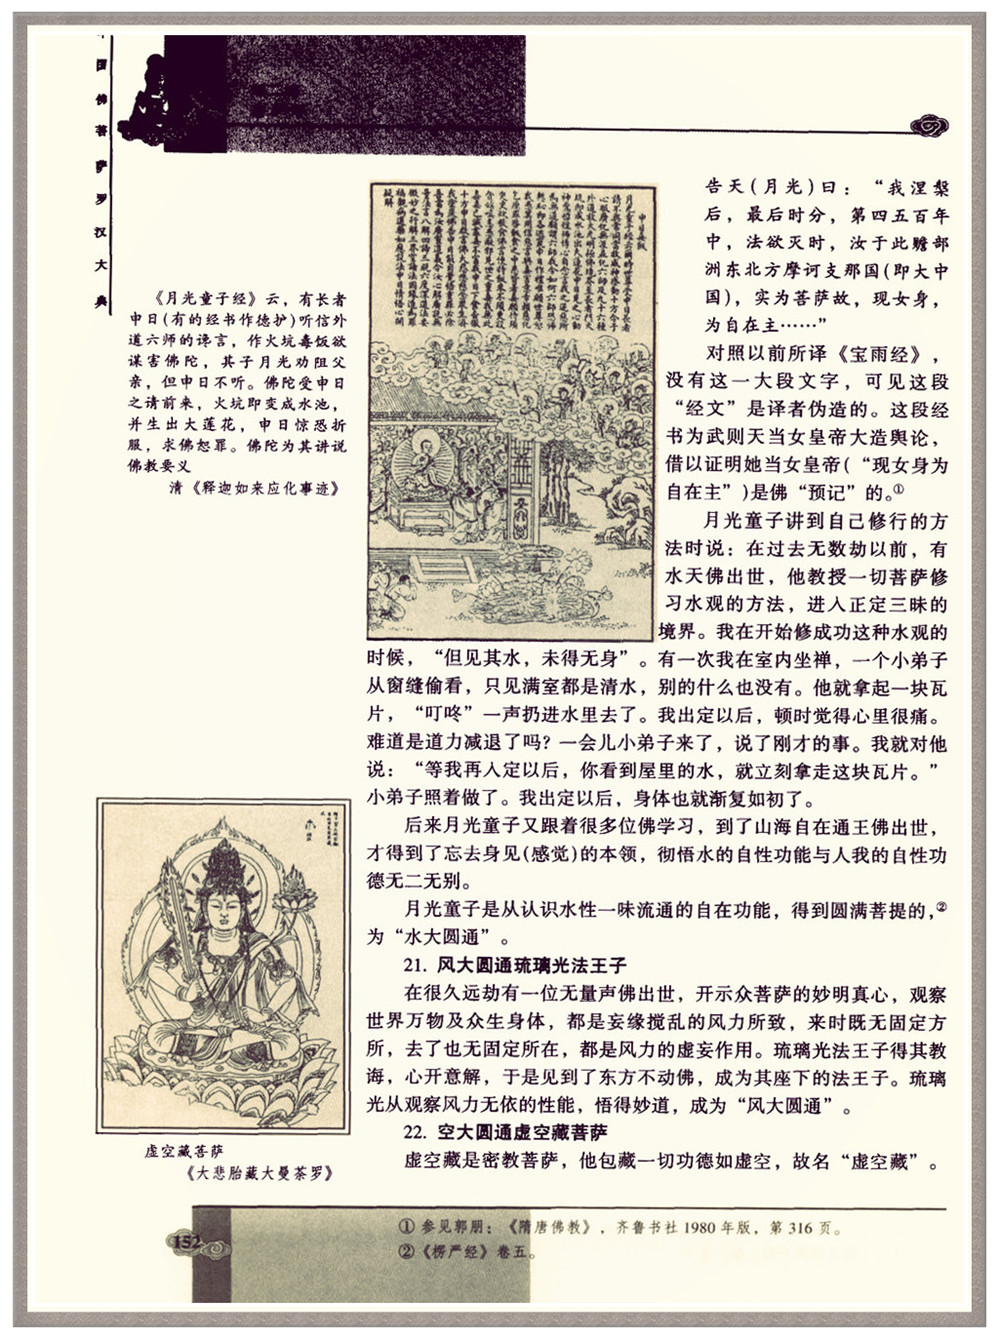 中国佛菩萨罗汉大典
《月光童子经》云，有长者
申日(有的经书作德护)听信外
道六师的谗言，作火坑毒饭欲
谋害佛陀，其子月光劝阻父
亲，但申日不听。佛陀受申日
之请前来，火坑即变成水池，
并生出大莲花，申日惊恐折
服，求佛恕罪。佛陀为其讲说
佛教要义
清《释迦如来应化事迹》
告天(月光)曰：“我涅槃
后，最后时分，第四五百年
中，法欲灭时，汝于此赡部
洲东北方摩诃支那国(即大中
国)，实为菩萨故，现女身，
为自在主……”
对照以前所译《宝雨经》，
没有这一大段文字，可见这段
“经文”是译者伪造的。这段经
书为武则天当女皇帝大造舆论，
借以证明她当女皇帝(“现女身为
自在主”)是佛“预记”的。①
月光童子讲到自己修行的方
法时说：在过去无数劫以前，有
水天佛出世，他教授一切菩萨修
习水观的方法，进入正定三昧的
境界。我在开始修成功这种水观的
时候，“但见其水，未得无身”。有一次我在室内坐禅，一个小弟子
从窗缝偷看，只见满室都是清水，别的什么也没有。他就拿起一块瓦
片，“叮咚”一声扔进水里去了。我出定以后，顿时觉得心里很痛。
难道是道力减退了吗？一会儿小弟子来了，说了刚才的事。我就对他
说：“等我再入定以后，你看到屋里的水，就立刻拿走这块瓦片。”
小弟子照着做了。我出定以后，身体也就渐复如初了。
后来月光童子又跟着很多位佛学习，到了山海自在通王佛出世，
才得到了忘去身见(感觉)的本领，彻悟水的自性功能与人我的自性功
德无二无别。
月光童子是从认识水性一味流通的自在功能，得到圆满菩提的，②
为“水大圆通”。
21. 风大圆通琉璃光法王子
在很久远劫有一位无量声佛出世，开示众菩萨的妙明真心，观察
世界万物及众生身体，都是妄缘搅乱的风力所致，来时既无固定方
所，去了也无固定所在，都是风力的虚妄作用。琉璃光法王子得其教
诲，心开意解，于是见到了东方不动佛，成为其座下的法王子。琉璃
光从观察风力无依的性能，悟得妙道，成为“风大圆通”。
22. 空大圆通虚空藏菩萨
虚空藏是密教菩萨，他包藏一切功德如虚空，故名“虚空藏”。
虚空藏菩萨
《大悲胎藏大曼荼罗》
① 参见郭朋：《隋唐佛教》，齐鲁书社 1980 年版，第 316 页。
②《楞严经》卷五。
152